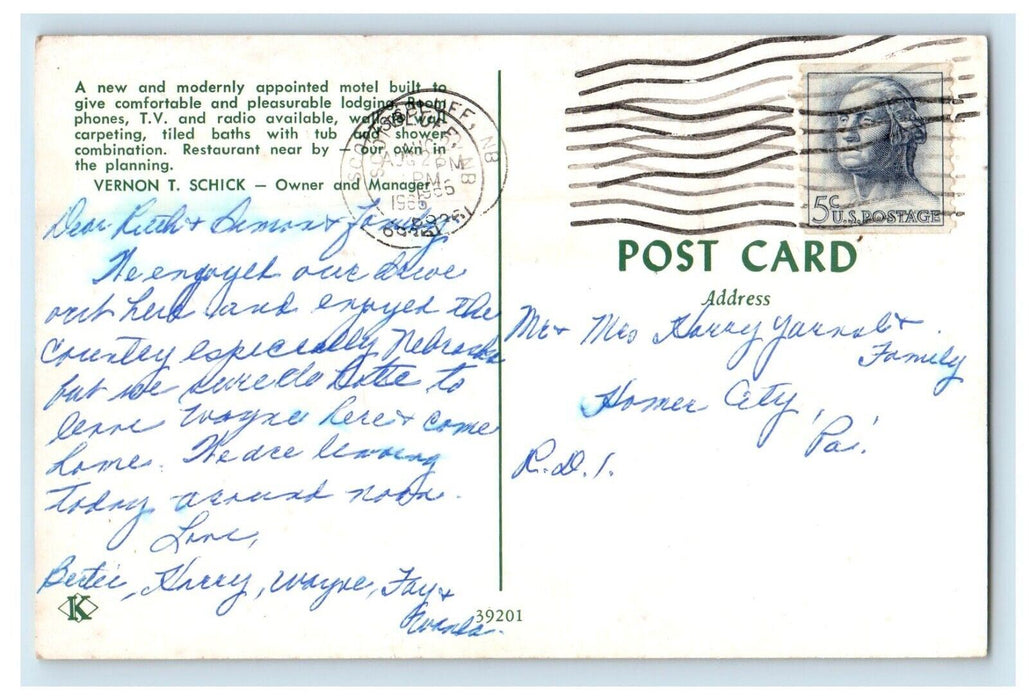 A new and modernly appointed motel built to
give comfortable and pleasurable lodging. Room
phones, T.V. and radio available, wall to wall
carpeting, tiled baths with tub and shower
combination. Restaurant near by — our own in
the planning.
VERNON T. SCHICK — Owner and Manager
SCOTTSBLUFF, NB
AUG 2
PM
1965
Dear Ruth & & Family,
We enjoyed our drive
out here and enjoyed the
country especially Nebraska
but we sure do hate to
leave Wayne here & come
home. We are leaving
today around noon.
Love,
Bertie, Harry, Wayne, Fay &
Wanda.
K
39201
5c
U.S. POSTAGE
POST CARD
Address
Mr & Mrs Harry &
Family
Homer City,
Pa.
R.D.1.